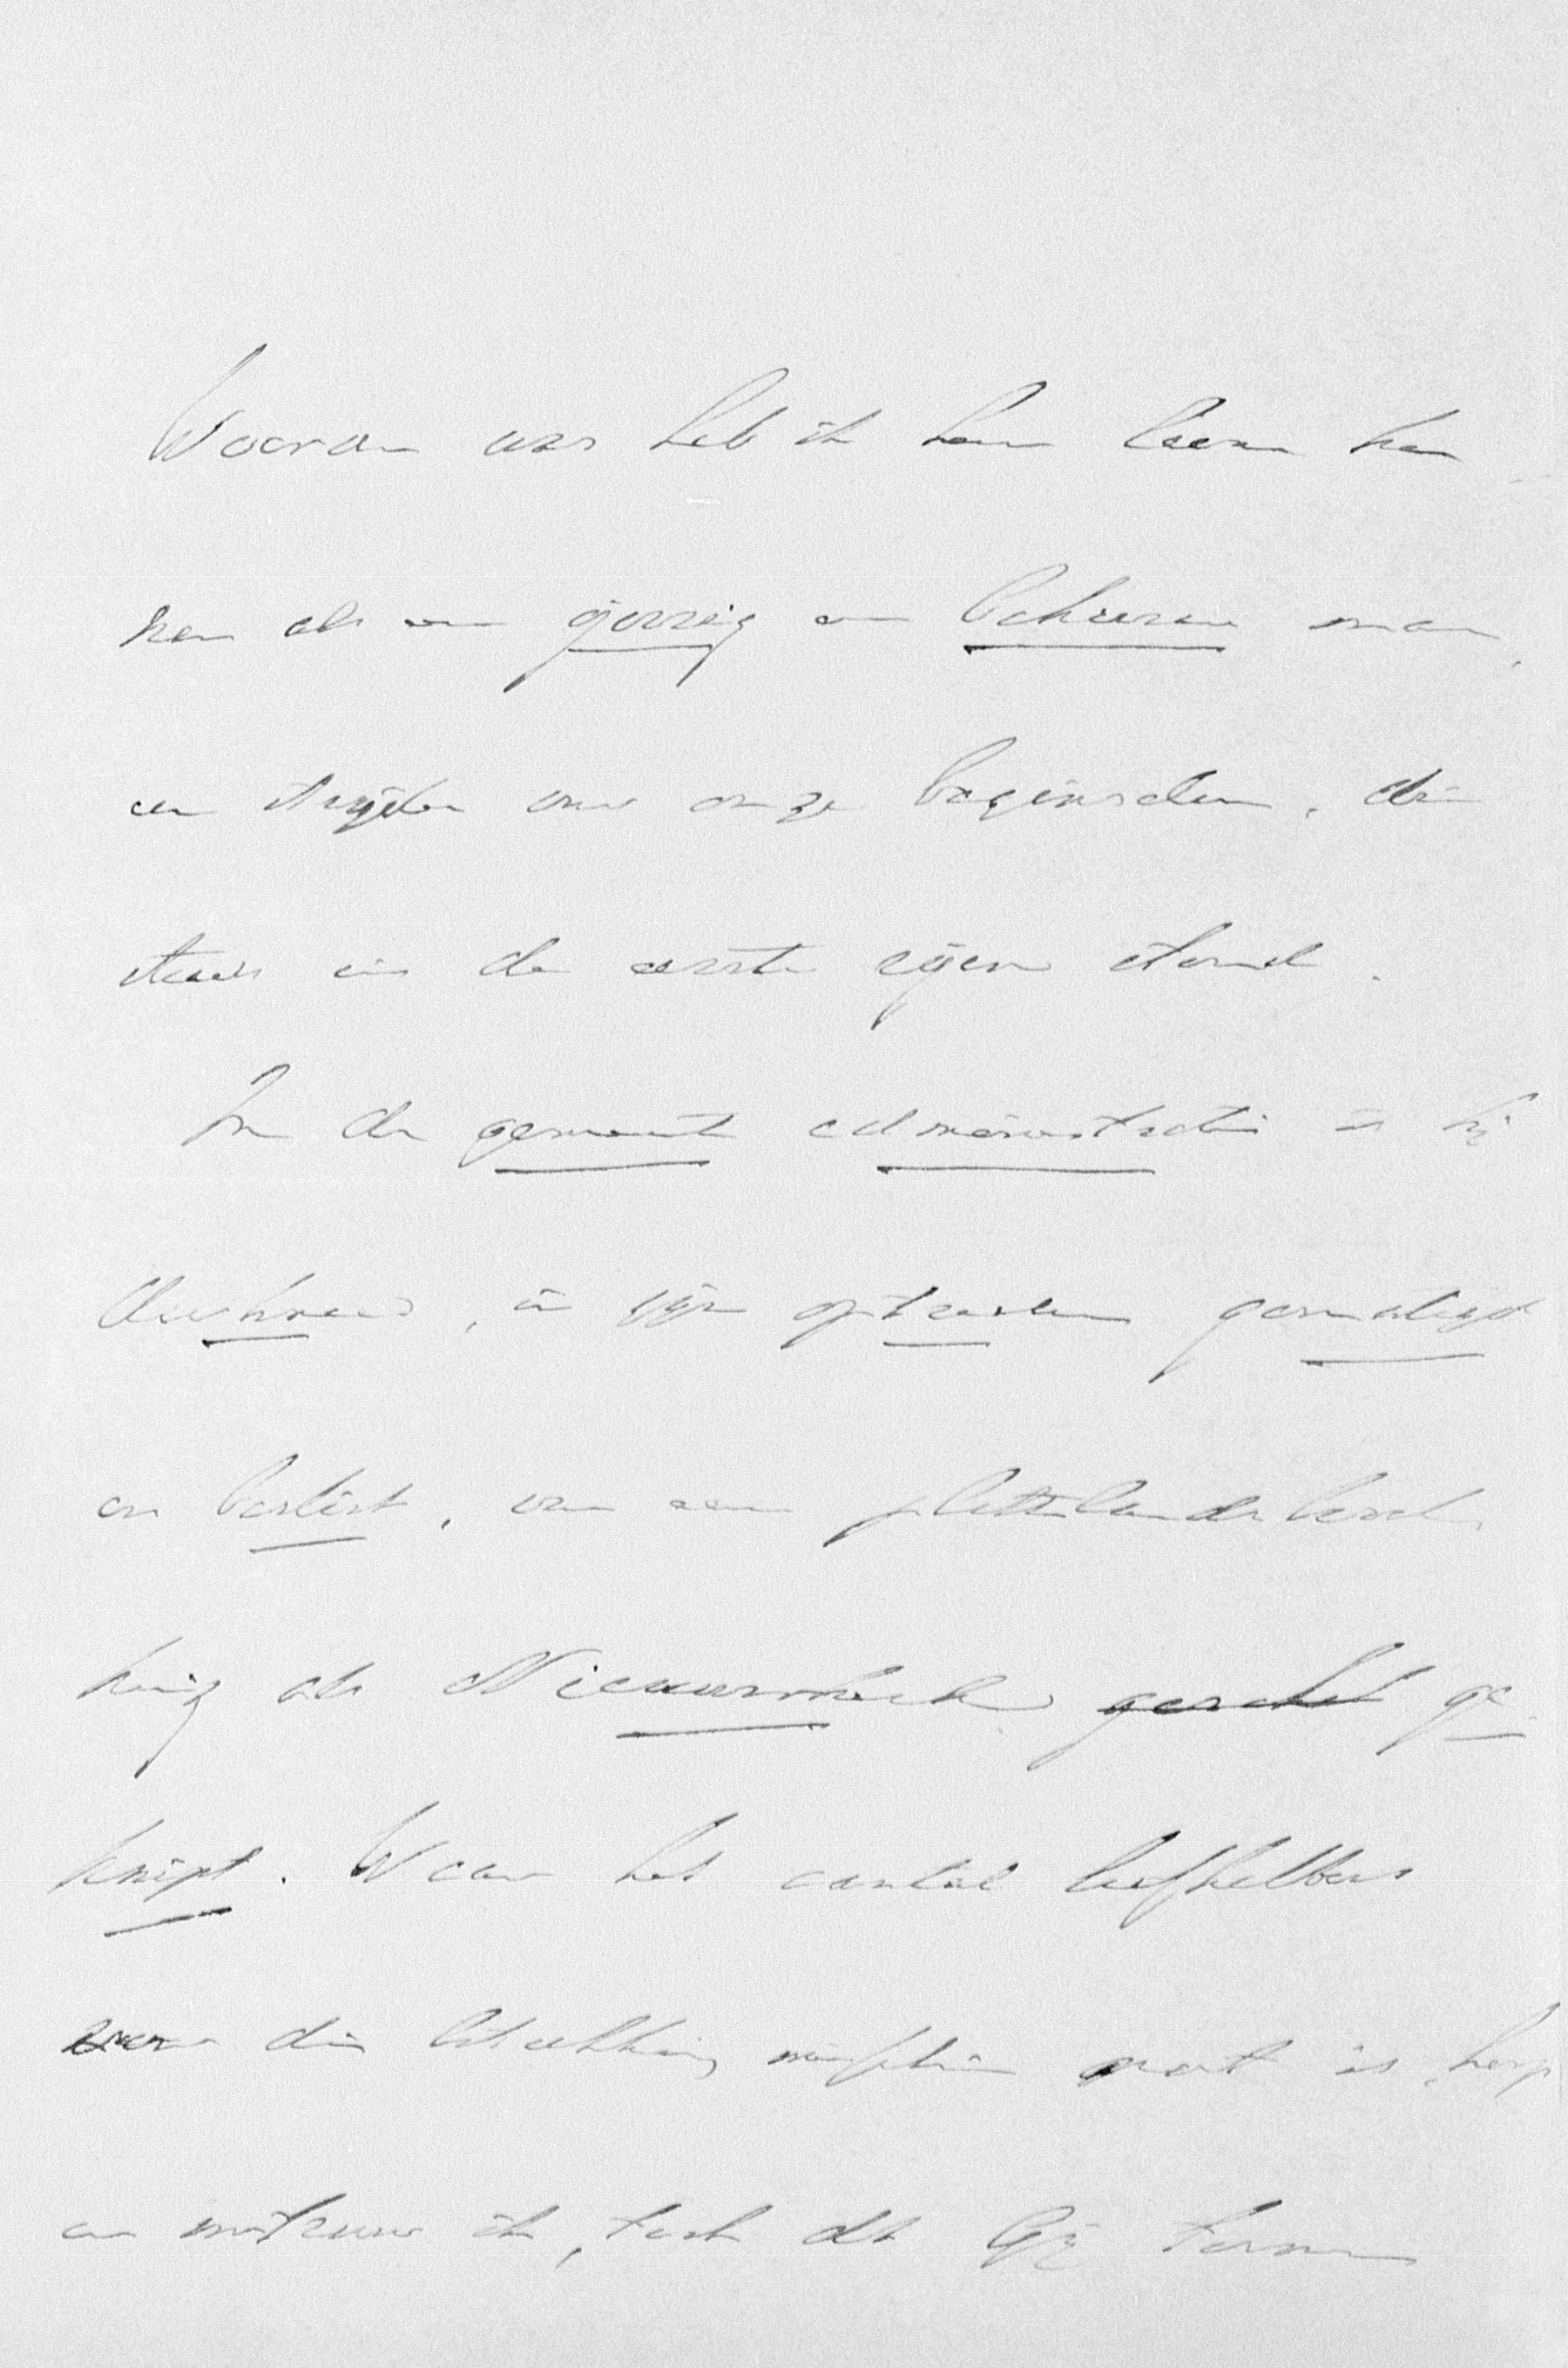 Waarom was heb ik hem leeren ken
nen als een ijverig en bekwaam man,
een strijder voor onze beginselen, die
steeds in de eerste rijen stond.
In de gemeente administratie is hij
doorkneed, in zijn optreden gematigd
en beslist, voor een plattelandsbevol
king als Nieuwerkerk geschikt ge
knipt. Waar het aantal liefhebbers
voor die betrekking misschien groot is, hoop
en vertrouw ik, toch dat Gij termen